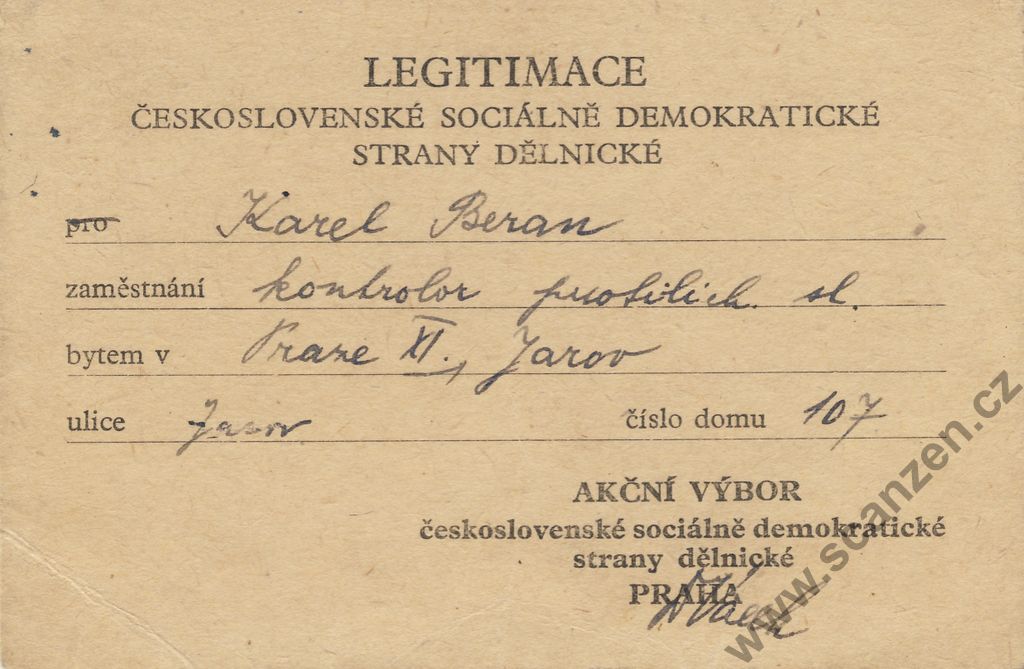 LEGITIMACE
ČESKOSLOVENSKÉ SOCIÁLNĚ DEMOKRATICKÉ
STRANY DĚLNICKÉ
pro Karel Beran
zaměstnání kontrolor sl.
bytem v Praze XI., Jarov
ulice Jarov číslo domu 107
AKČNÍ VÝBOR
československé sociálně demokratické
strany dělnické
PRAHA
www.scanzen.cz